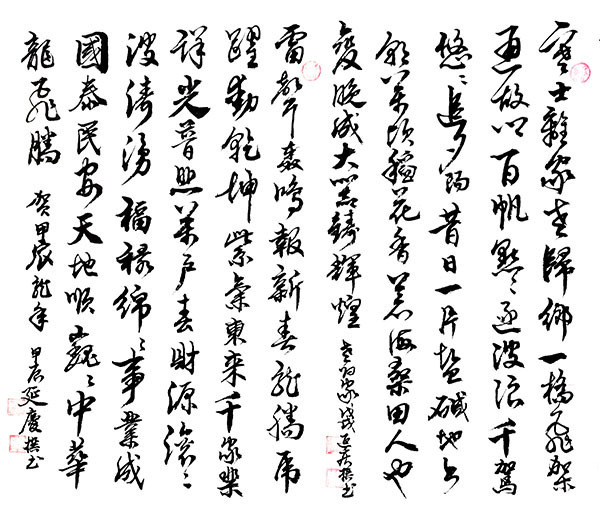 寒士離家老歸鄉一橋飛架
通故百帆點點逐波浪千
悠悠追夕陽昔日一片鹽碱地今
朝萬頃稻花香蒼海桑田人也
變晚成大器鑄輝煌
延慶撰书
雷聲轟鳴報新春龍騰虎
躍動乾坤紫氣東来千家樂
祥光普照萬戶春財源滾滾
波濤湧福祿綿綿事業成
國泰民安天地順巍巍中華
龍飛騰
賀甲辰龍年
甲辰延慶撰书